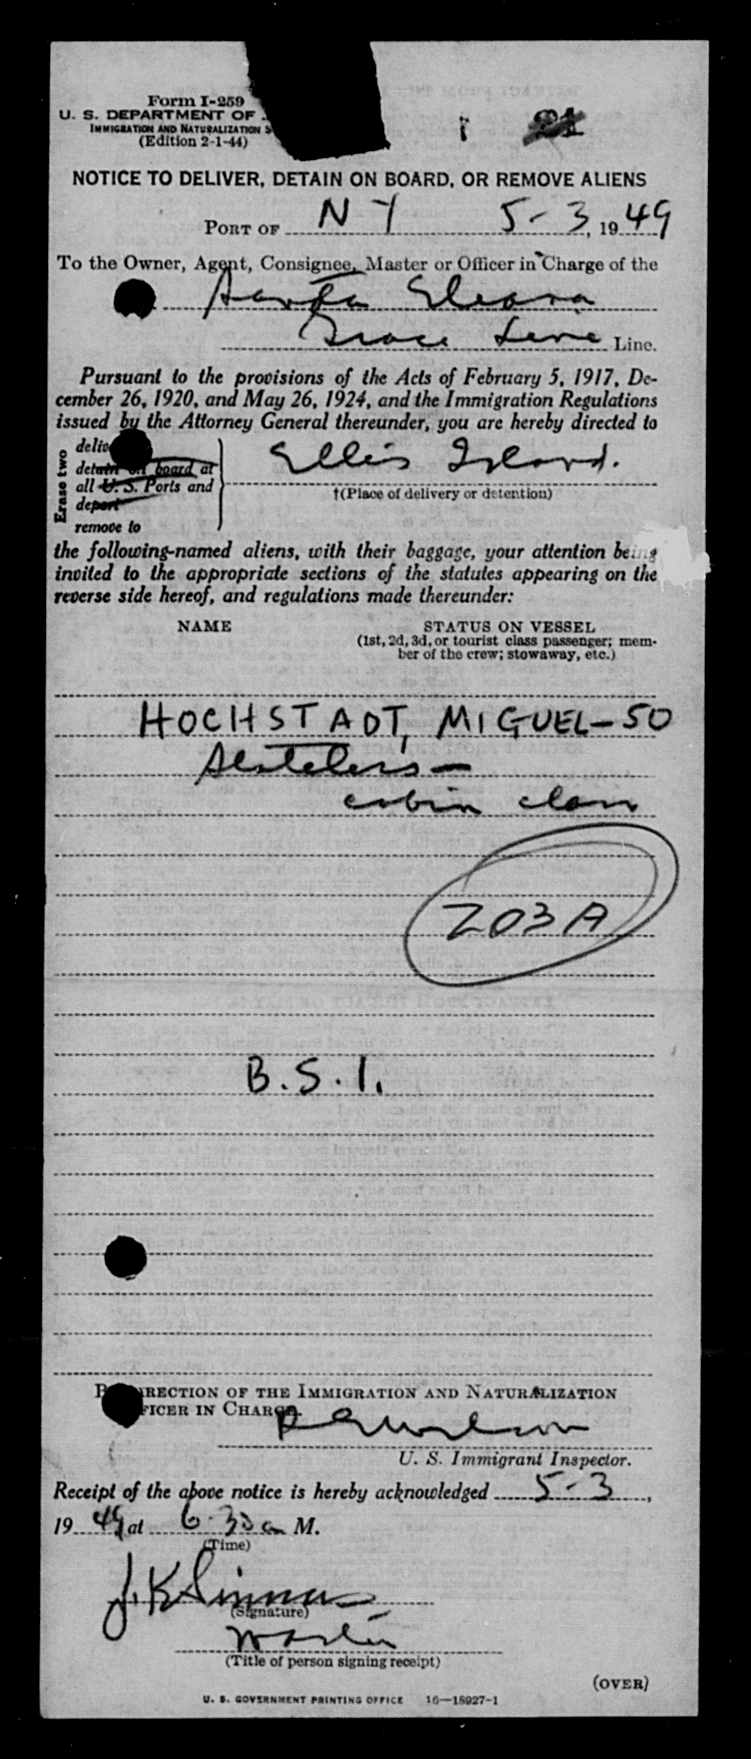 Form I-259
U. S. DEPARTMENT OF
IMMIGRATION AND NATURALIZATION S
(Edition 2-1-44)
21
NOTICE TO DELIVER, DETAIN ON BOARD, OR REMOVE ALIENS
PORT OF N Y 5-3, 1949
To the Owner, Agent, Consignee, Master or Officer in Charge of the
Santa Eleana
Grace Line Line.
Pursuant to the provisions of the Acts of February 5, 1917, De-
cember 26, 1920, and May 26, 1924, and the Immigration Regulations
issued by the Attorney General thereunder, you are hereby directed to
Erase two
delive
detain on board at
all U. S. Ports and
deport
remove to
Ellis Island.
†(Place of delivery or detention)
the following-named aliens, with their baggage, your attention being
invited to the appropriate sections of the statutes appearing on the
reverse side hereof, and regulations made thereunder:
NAME STATUS ON VESSEL
(1st, 2d, 3d, or tourist class passenger; mem-
ber of the crew; stowaway, etc.)
HOCHSTADT, MIGUEL-50
Stateless -
cabin class
203A
B.S.I.
B RECTION OF THE IMMIGRATION AND NATURALIZATION
FICER IN CHARGE.
U. S. Immigrant Inspector.
Receipt of the above notice is hereby acknowledged 5-3,
1949 at 6:30 a M.
(Time)
(Signature)
Master
(Title of person signing receipt)
(OVER)
U. S. GOVERNMENT PRINTING OFFICE 16—18927-1